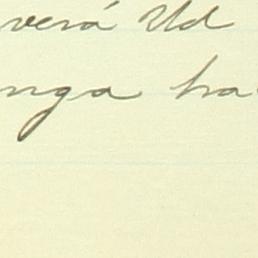 verá Ud
nga ha